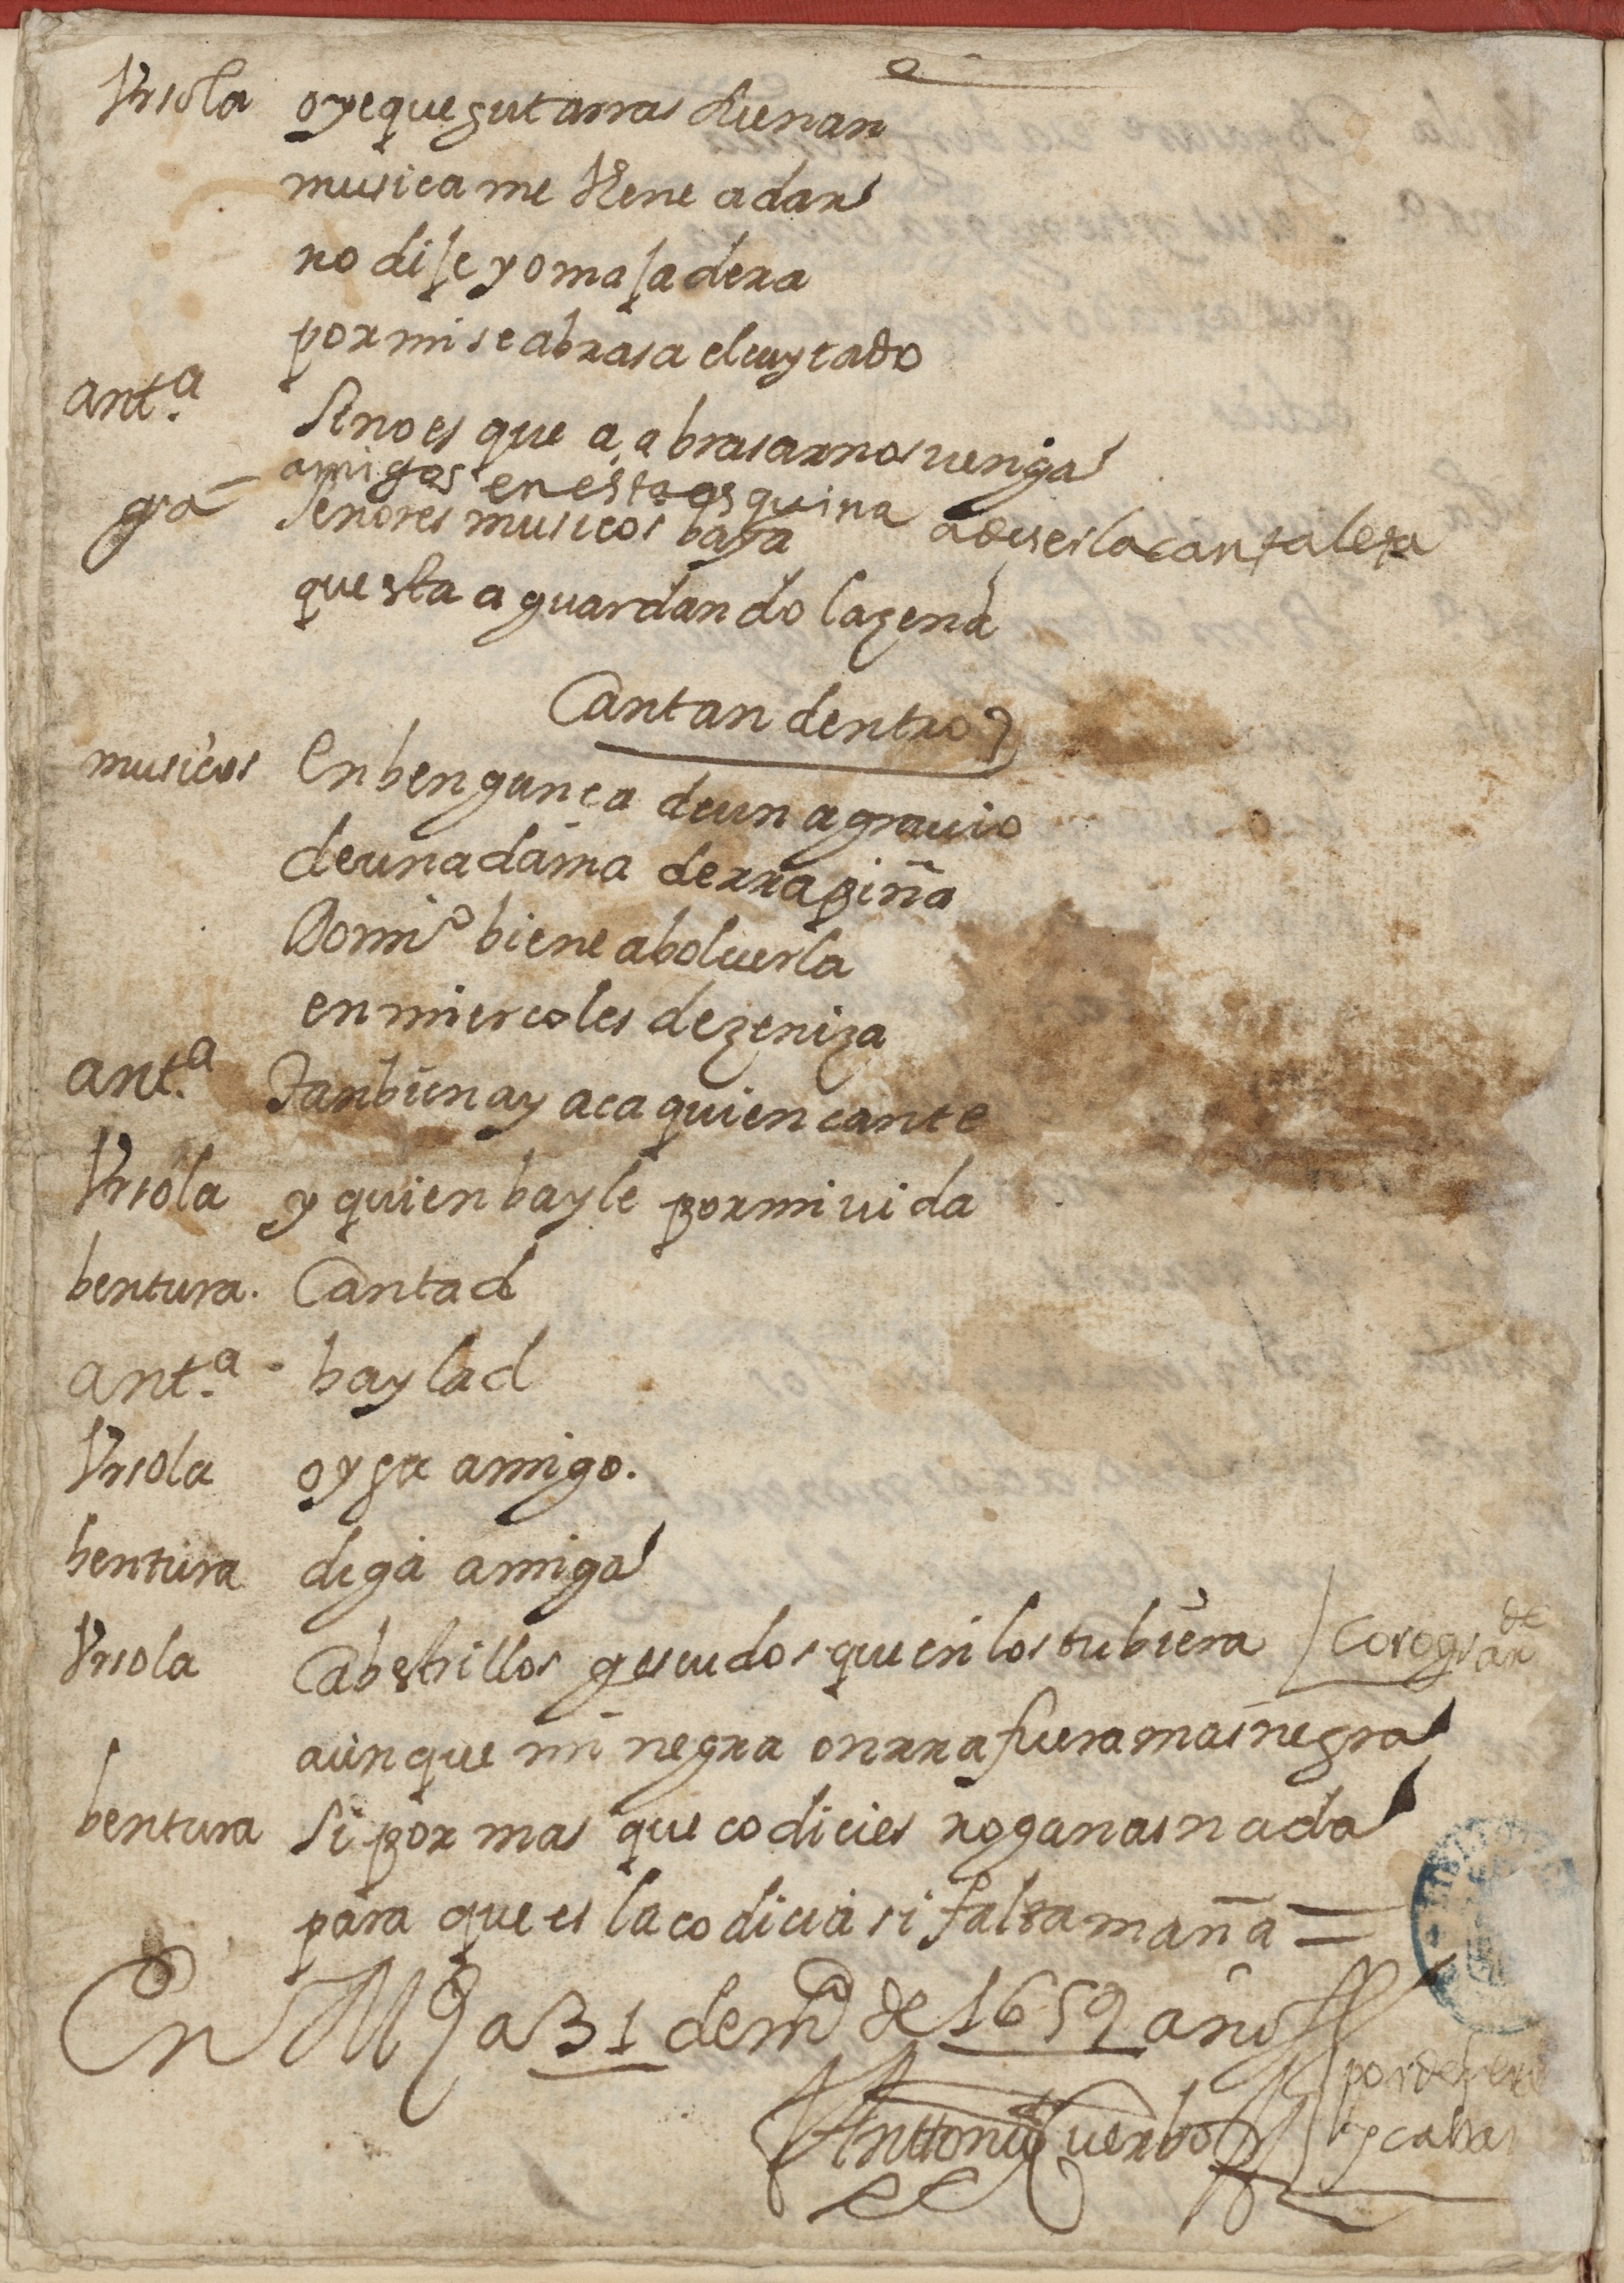 Ursola oye que gutarras suenan
musica me viene a dar
no dise yo masadera
por mi se abrasa el cuytado
ant.ª Si no es que a abrasarnos venga
amigos en esta esquina
gra señores musicos baya a de ser la cantaleta
que sta aguardando la zena
Cantan dentro
musicos En bengança de un agrauio
de una dama de rrapiña
Domi.º biene a boluerla
en miercoles de zeniza
ant.ª Tanbien ay aca quien cante
Ursola y quien bayle por mi uida
bentura. Cantad
ant.ª baylad
Ursola oyga amigo.
bentura diga amiga
Ursola Cabestrillos y escudos quien los tubiera
aunque mi negra onrra fuera mas negra
bentura Si por mas que codicies no ganas nada
para que es la codicia si falta maña =
En Md a 31 de mº de 1659 años
Anttonio Cuerbo